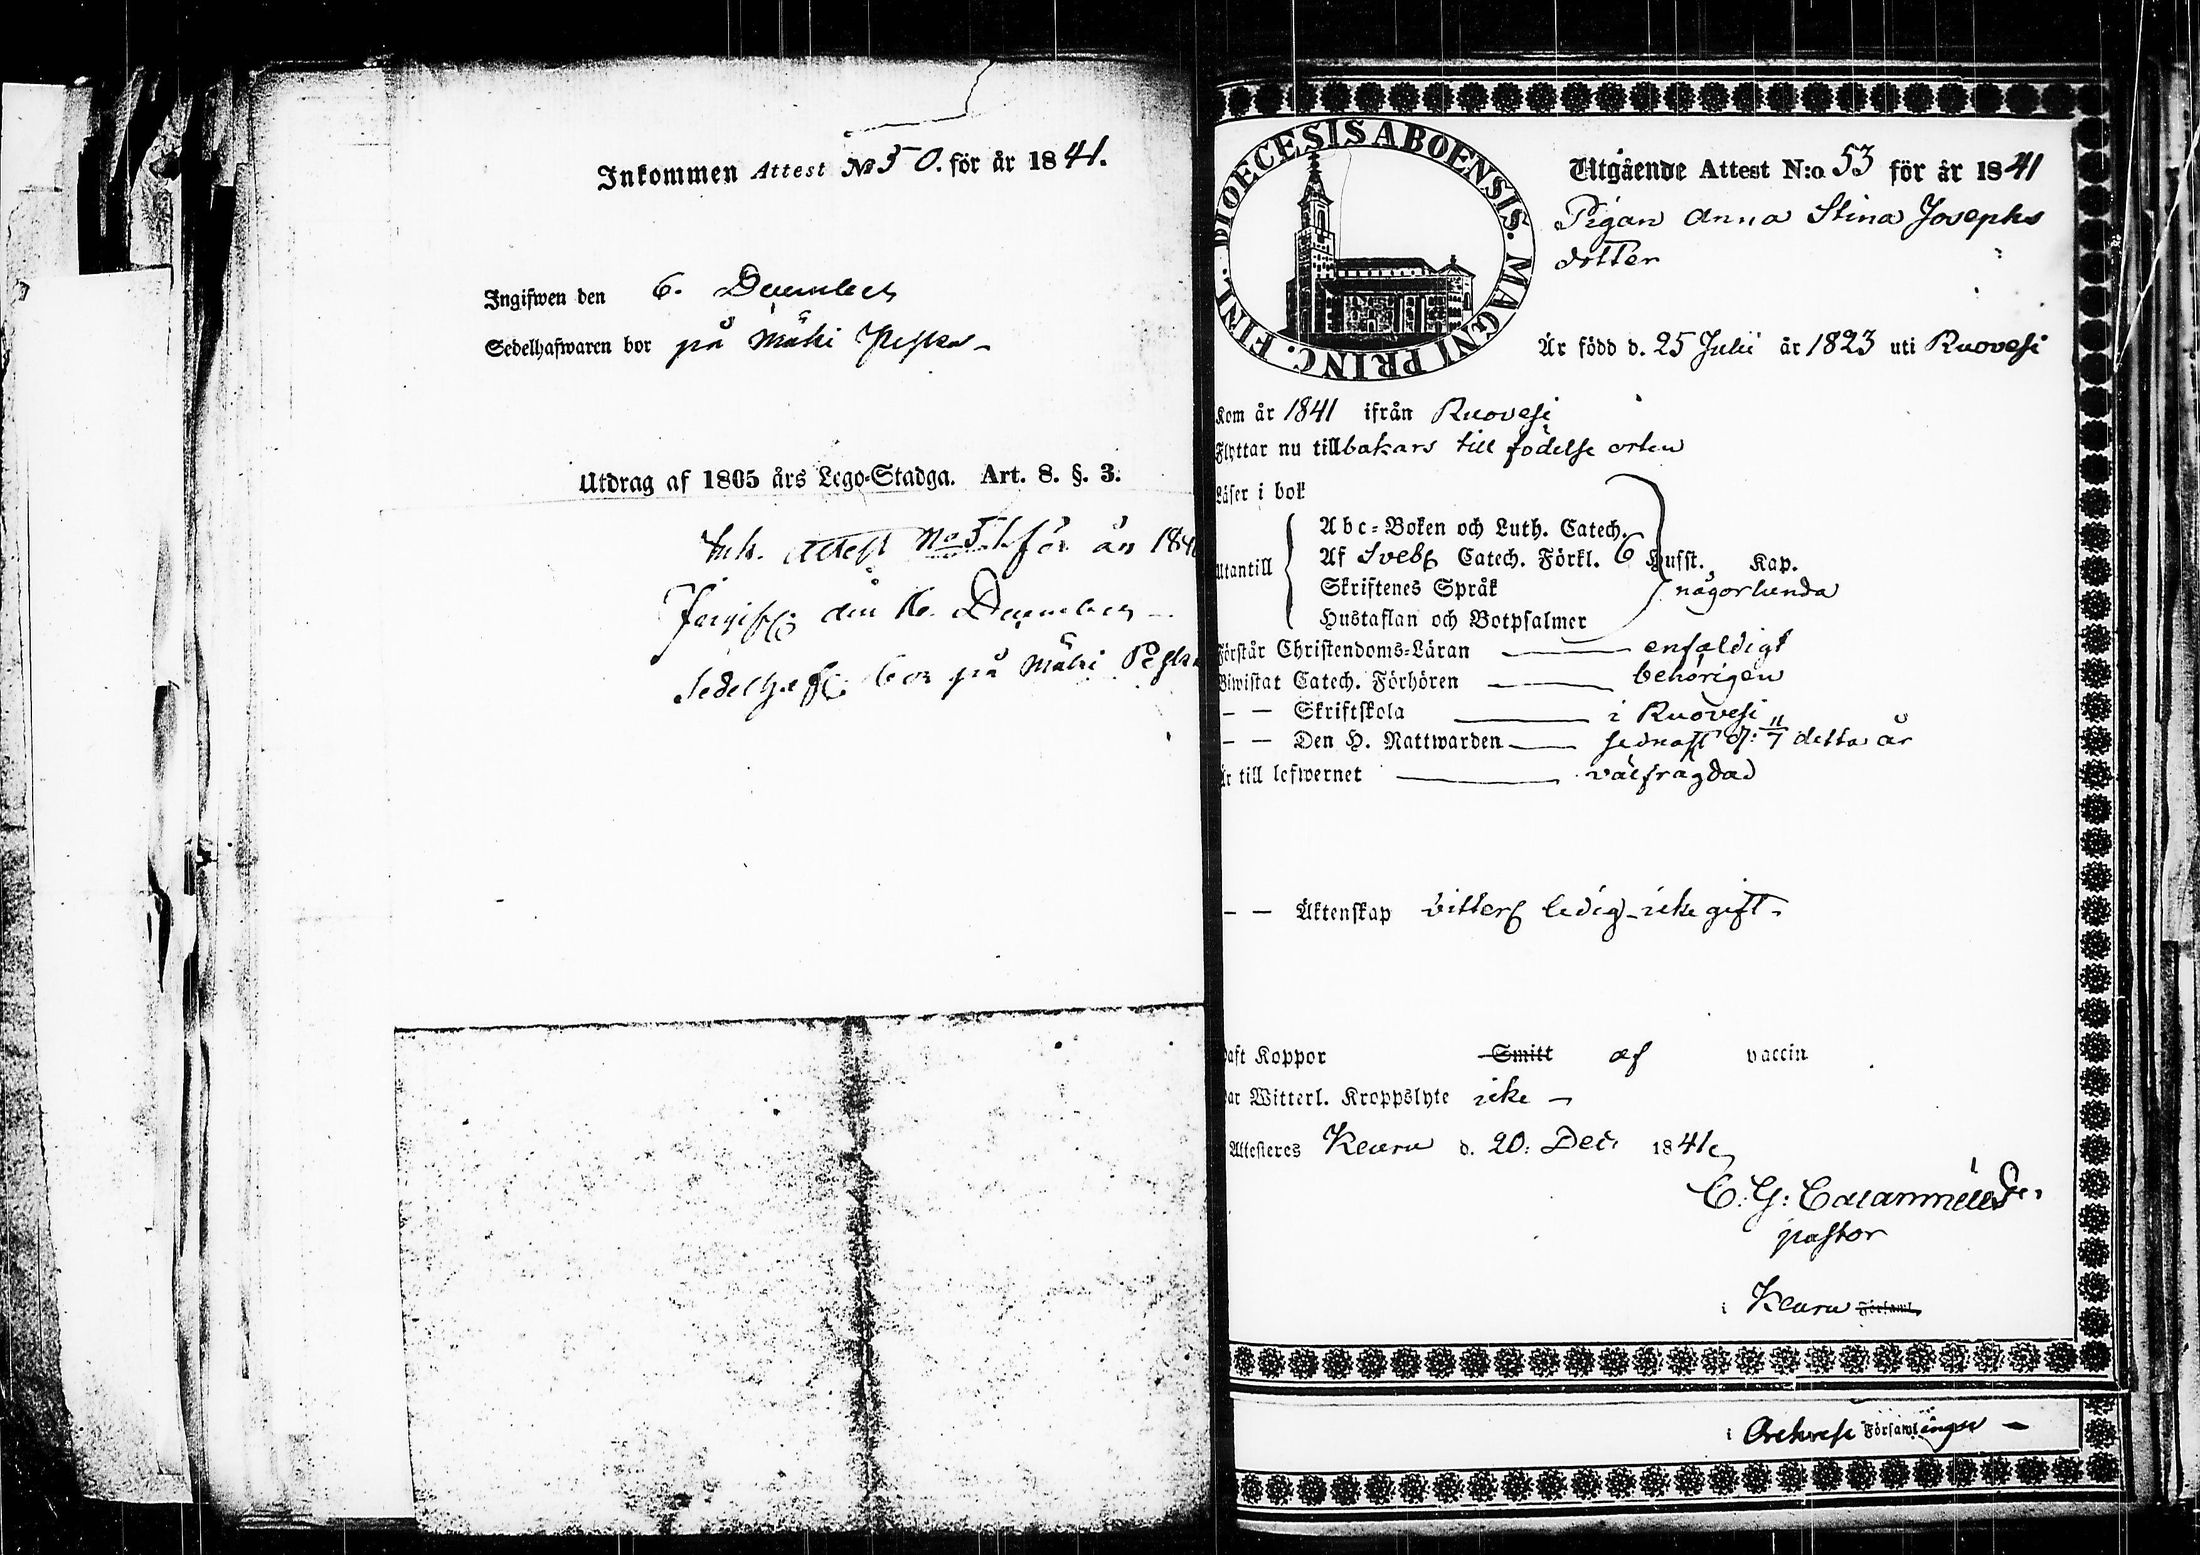 Inkommen Attest No 50. för år 1841.
Ingifwen den 6. December
Sedelhafwaren bor på Mäki
Utdrag af 1805 års Lego-Stadga. Art. 8. §. 3.
Ink. Attest No 51. för år 184
den 16. December
bor på Mäki
DIOECESIS ABOENSIS. MAGNI PRINC. FINL.
Utgående Attest N:o 53 för år 1841
Pigan Anna Stina Josephs
dotter
Är född d. 25 Julii år 1823 uti Ruovesi
Kom år 1841 ifrån Ruovesi
Flyttar nu tillbakars till födelse orten
Läser i bok
Utantill
Abc-Boken och Luth. Catech.
Af Sveb Catech. Förkl. 6 Hufst. Kap.
Skriftenes Språk någorlunda
Hustaflan och Botpsalmer
Förstår Christendoms-Läran enfaldigt
Biwistat Catech. Förhören behörigen
— — Skriftskola i Ruovesi
— — Den H. Nattwarden sednast d: 11/7 detta år
Är till lefwernet välfrägdad
— — Äktenskap ledig icke gift.
Haft Koppor Smitt af vaccin
Har Witterl. Kroppslyte icke —
Attesteres Keuru d. 20. Dec. 1841
C. G. Calamnius
pastor
i Keuru Församl.
i Orehvesi Församlingen —